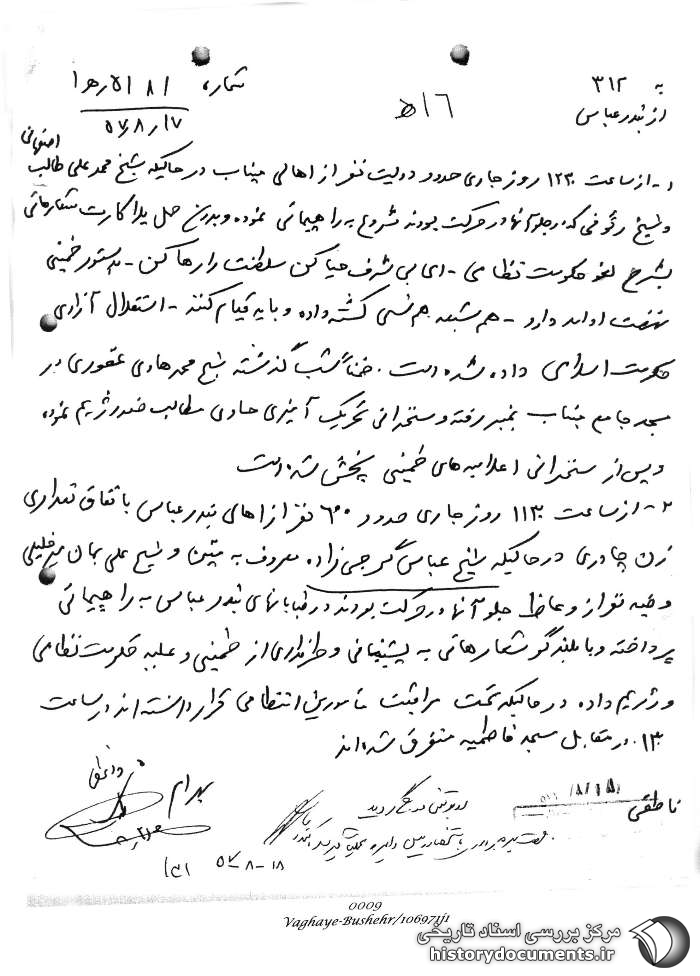 به ۳۱۲
شماره ۸۱ / ۵ره۱
از بندرعباس
۵۷/۸/۱۷
۱۶ه
۱- از ساعت ۱۲۳۰ روز جاری حدود دویست نفر از اهالی میناب در حالیکه شیخ محمد علی طالب اصفهانی
و شیخ رئوفی که در جلو آنها در حرکت بودند شروع به راهپیمائی نموده و بدون حمل پلاکارت شعارهائی
بشرح لغو حکومت نظامی - ای بی شرف حیا کن سلطنت را رها کن - به دستور خمینی
نهضت ادامه دارد - هم شیعه هم سنی کشته داده و باید قیام کنند - استقلال آزادی
حکومت اسلامی داده شده است. ضمناً شب گذشته شیخ محمد هادی غفوری در
مسجد جامع میناب بمنبر رفته و سخنرانی تحریک آمیزی حاوی مطالب ضد رژیم نموده
و پس از سخنرانی اعلامیه های خمینی پخش شده است
۲- از ساعت ۱۱۳۰ روز جاری حدود ۶۰۰ نفر از اهالی بندرعباس با تفاق تعدادی
زن چادری در حالیکه شیخ عباس گرجی زاده معروف به متین و شیخ علی بمان میرخلیلی
و بقیه نفر از وعاظ جلو آنها در حرکت بودند در خیابانهای بندرعباس به راهپیمائی
پرداخته و با بلندگو شعارهائی به پشتیبانی و طرفداری از خمینی و علیه حکومت نظامی
و رژیم داده در حالیکه تحت مراقبت مأمورین انتظامی قرار داشته اند در ساعت
۱۳۰۰ در مقابل مسجد فاطمیه متفرق شده اند
بهرام
ناطقی
۵۷-۸-۱۸
0009
Vaghaye-Bushehr/106971j1
مرکز بررسی اسناد تاریخی
historydocuments.ir